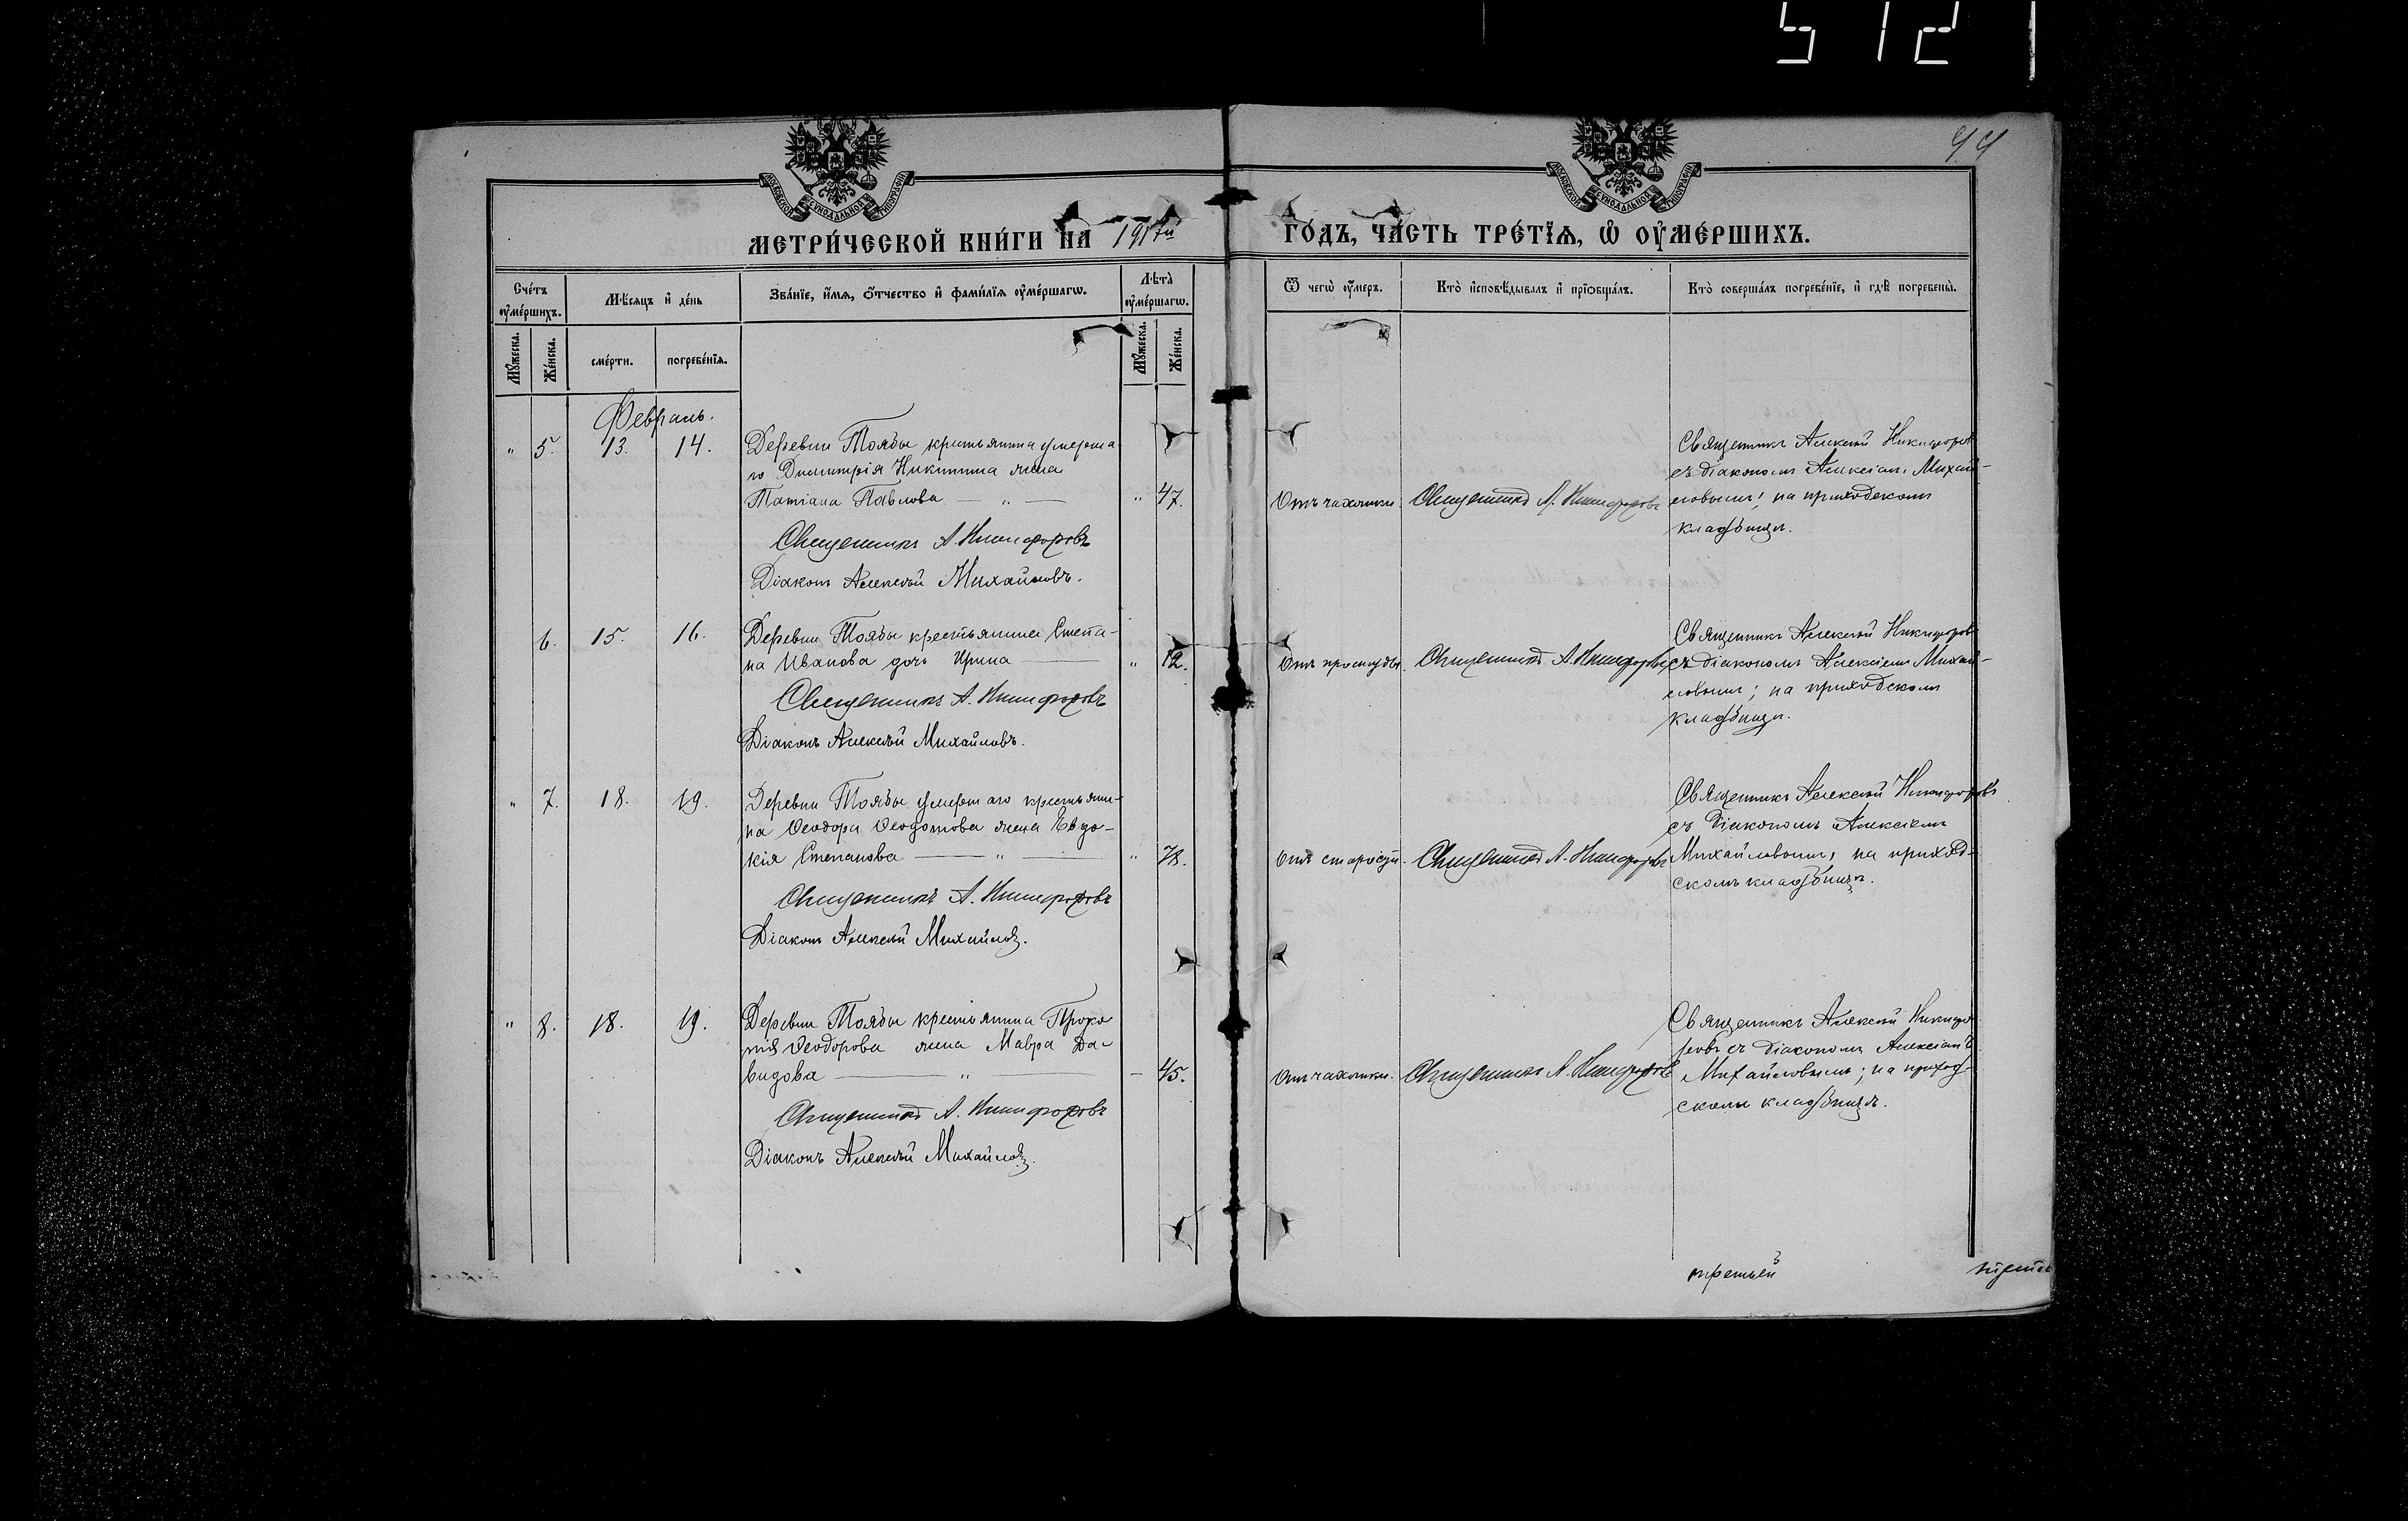 5121
44
МОСКОВСКОЙ СѴНОДАЛЬНОЙ ТИПОГРАФІИ
МОСКОВСКОЙ СѴНОДАЛЬНОЙ ТИПОГРАФІИ
МЕТРИ́ЧЕСКОЙ КНИ́ГИ НА 1917й ГО́ДЪ, ЧА́СТЬ ТРЕ́ТІѦ, Ѡ ОУМЕ́РШИХЪ.
Сче́тъ оуме́ршихъ.
Мѣсяцъ и де́нь
Зва́нїе, и́мѧ, ѻ́тчество и фами́лїѧ оуме́ршагѡ.
Лѣта̀ оуме́ршагѡ.
Ѿ чегѡ̀ оу́меръ.
Кто̀ исповѣ́дывалъ и прїѡбща́лъ.
Кто̀ соверша́лъ погребе́нїе, и гдѣ̀ погребены̀.
Мꙋ́жеска.
Же́нска.
сме́рти.
погребе́нїѧ.
Мꙋ́жеска.
Же́нска.
Февраль.
" 5. 13. 14. Деревни Тоябы крестьянина умерша-
го Димитрія Никитина жена
Татіана Павлова — " — " 47.
Священникъ А. Никифоровъ
Діаконъ Алексѣй Михайловъ.
Отъ чахотки. Священникъ А. Никифоровъ
Священникъ Алексѣй Никифоровъ
съ діакономъ Алексіемъ Михай-
ловымъ; на приходскомъ
кладбищѣ.
6. 15. 16. Деревни Тоябы крестьянина Степа-
на Иванова дочь Ирина — " 12.
Священникъ А. Никифоровъ
Діаконъ Алексѣй Михайловъ.
Отъ простуды Священникъ А. Никифоровъ
Священникъ Алексѣй Никифоровъ
съ діакономъ Алексіемъ Михай-
ловымъ; на приходскомъ
кладбищѣ.
" 7. 18. 19. Деревни Тоябы умершаго крестьяни-
на Ѳеодора Ѳеодотова жена Евдо-
кія Степанова — " — " 78.
Священникъ А. Никифоровъ
Діаконъ Алексѣй Михайловъ.
Отъ старости. Священникъ А. Никифоровъ
Священникъ Алексѣй Никифоровъ
съ діакономъ Алексіемъ
Михайловымъ, на приход-
скомъ кладбищѣ.
" 8. 18. 19. Деревни Тоябы крестьянина Проко
пія Ѳеодорова жена Мавра Да-
видова — " — 45.
Священникъ А. Никифоровъ
Діаконъ Алексѣй Михайловъ.
Отъ чахотки. Священникъ А. Никифоровъ
Священникъ Алексѣй Никифо
ровъ съ діакономъ Алексіемъ
Михайловымъ; на приход-
скомъ кладбищѣ.
третьей